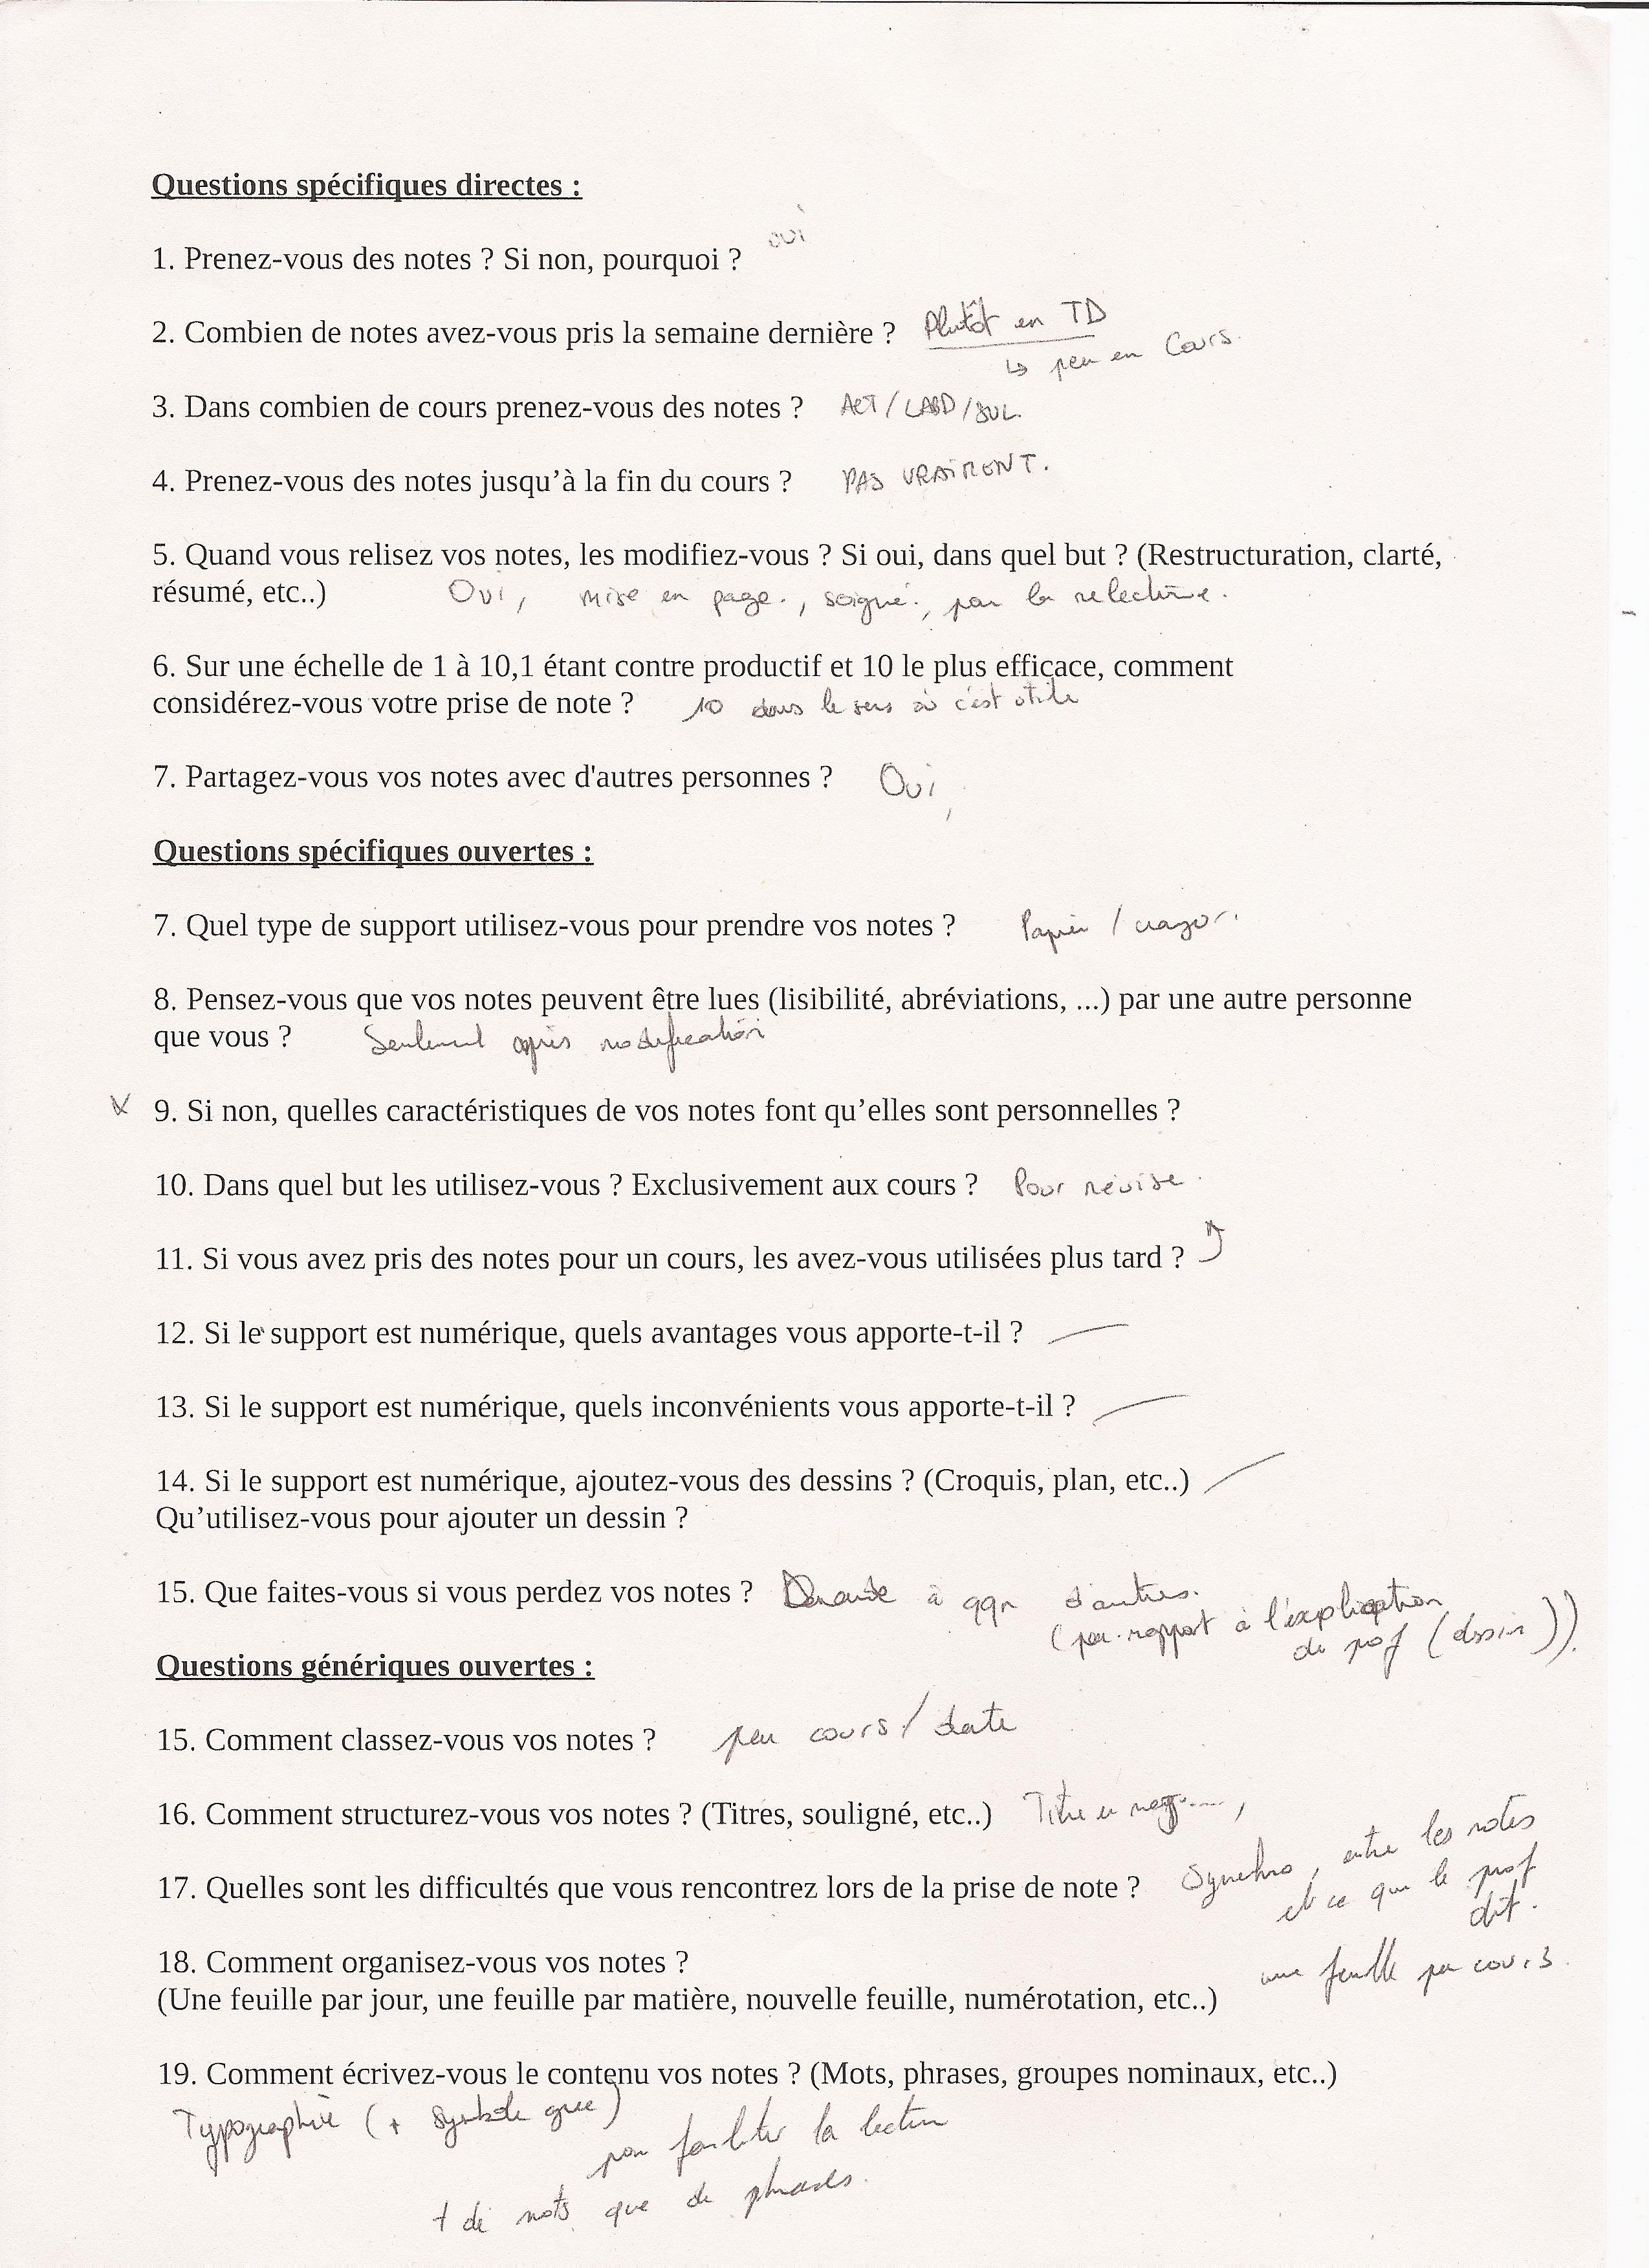 Questions spécifiques directes :
1. Prenez-vous des notes ? Si non, pourquoi ? oui
2. Combien de notes avez-vous pris la semaine dernière ? Plutôt en TD
↳ peu en Cours.
3. Dans combien de cours prenez-vous des notes ? ACT / LABD / SVL.
4. Prenez-vous des notes jusqu’à la fin du cours ? PAS VRAIMENT.
5. Quand vous relisez vos notes, les modifiez-vous ? Si oui, dans quel but ? (Restructuration, clarté,
résumé, etc..) Oui, mise en page., soigné., pour la relecture.
6. Sur une échelle de 1 à 10,1 étant contre productif et 10 le plus efficace, comment
considérez-vous votre prise de note ? 10 dans le sens où c'est utile
7. Partagez-vous vos notes avec d'autres personnes ? Oui,
Questions spécifiques ouvertes :
7. Quel type de support utilisez-vous pour prendre vos notes ? Papier / crayon.
8. Pensez-vous que vos notes peuvent être lues (lisibilité, abréviations, ...) par une autre personne
que vous ? Seulement après modification
9. Si non, quelles caractéristiques de vos notes font qu’elles sont personnelles ?
10. Dans quel but les utilisez-vous ? Exclusivement aux cours ? Pour révise.
11. Si vous avez pris des notes pour un cours, les avez-vous utilisées plus tard ?
12. Si le support est numérique, quels avantages vous apporte-t-il ? —
13. Si le support est numérique, quels inconvénients vous apporte-t-il ? —
14. Si le support est numérique, ajoutez-vous des dessins ? (Croquis, plan, etc..) —
Qu’utilisez-vous pour ajouter un dessin ?
15. Que faites-vous si vous perdez vos notes ? Demande à qqn d'autres.
(par rapport à l'explication
du prof (dessin)).
Questions génériques ouvertes :
15. Comment classez-vous vos notes ? par cours / date
16. Comment structurez-vous vos notes ? (Titres, souligné, etc..) Titre en
17. Quelles sont les difficultés que vous rencontrez lors de la prise de note ? Synchro, entre les notes
et ce que le prof
dit.
18. Comment organisez-vous vos notes ?
(Une feuille par jour, une feuille par matière, nouvelle feuille, numérotation, etc..) une feuille par cours.
19. Comment écrivez-vous le contenu vos notes ? (Mots, phrases, groupes nominaux, etc..)
Typographie (+ Symbole grec)
pour faciliter la lecture
+ de mots que de phrases.